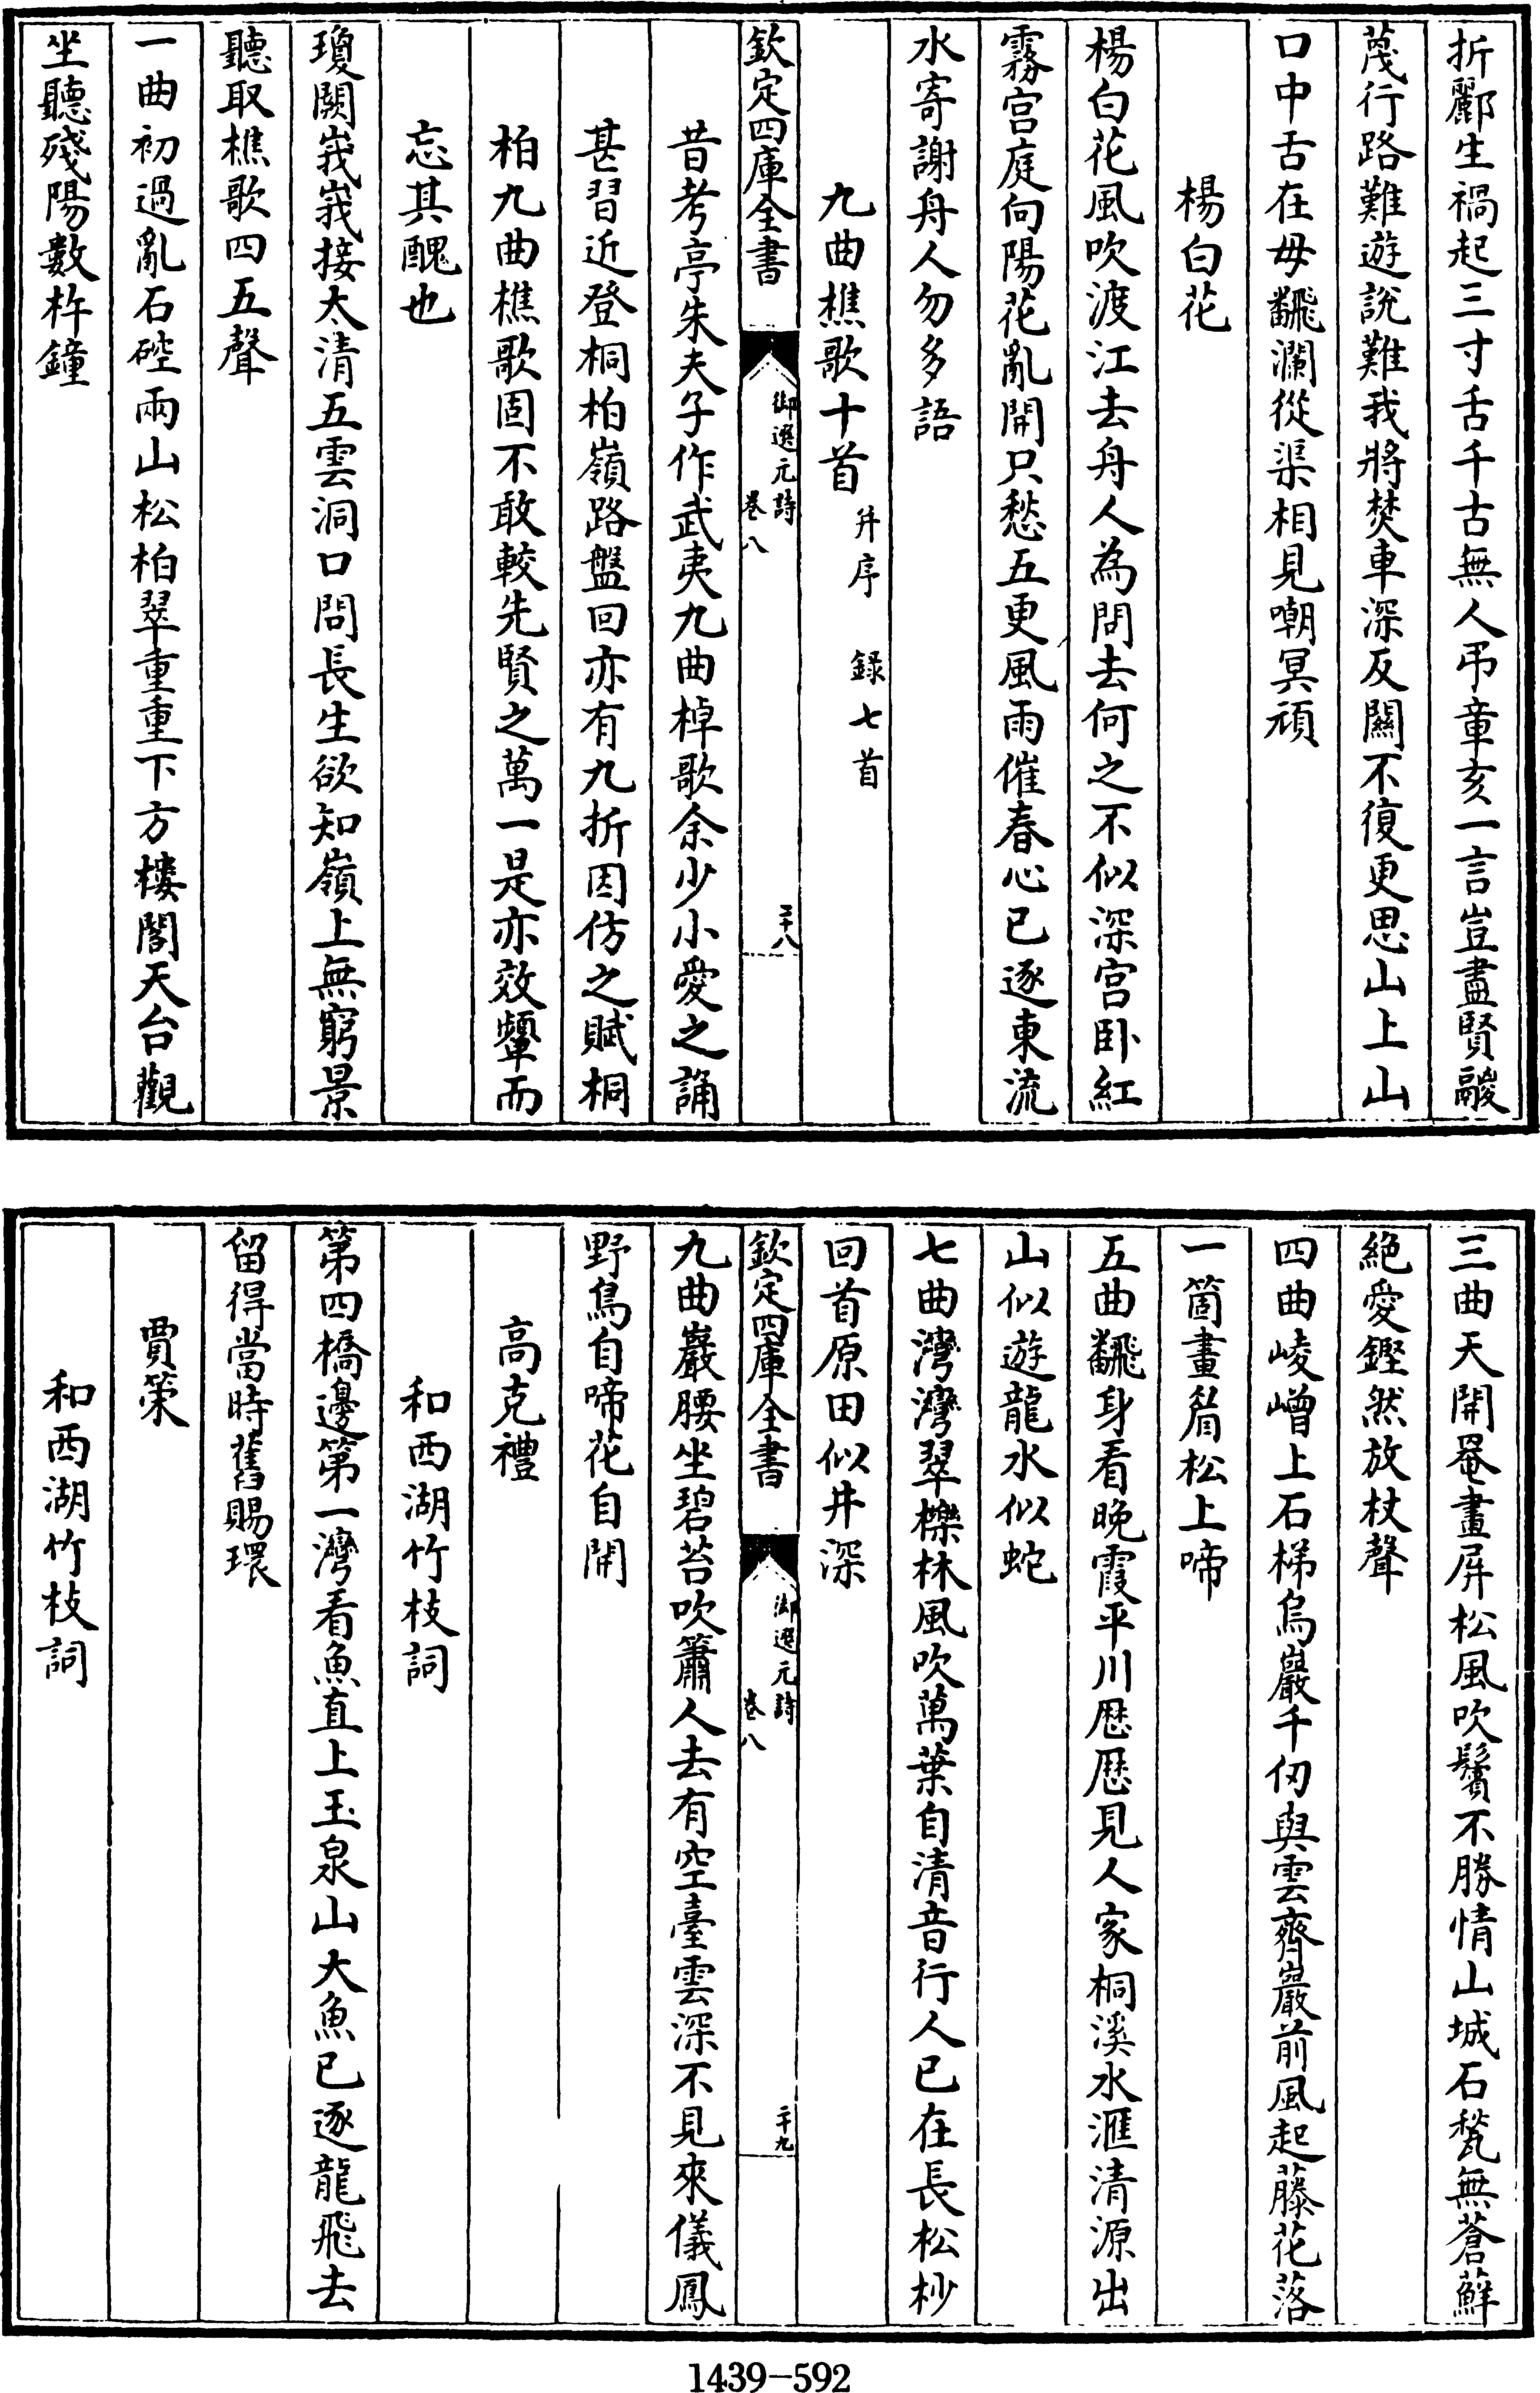 折酈生禍起三寸舌千古無人弔章亥一言豈盡賢鬷
蔑行路難遊說難我將焚車深反關不復更思山上山
口中舌在毋飜瀾從渠相見嘲冥頑
楊白花
楊白花風吹渡江去舟人為問去何之不似深宫卧紅
霧宫庭向陽花亂開只愁五更風雨催春心已逐東流
水寄謝舟人勿多語
九曲樵歌十首 并序 録七首
欽定四庫全書 御選元詩 卷八 二十八
昔考亭朱夫子作武夷九曲棹歌余少小愛之誦
甚習近登桐柏嶺路盤回亦有九折因仿之賦桐
柏九曲樵歌固不敢較先賢之萬一是亦效顰而
忘其醜也
瓊闕峩峩接太清五雲洞口問長生欲知嶺上無窮景
聽取樵歌四五聲
一曲初過亂石硿兩山松柏翠重重下方樓閣天台觀
坐聽殘陽數杵鐘
三曲天開罨畫屏松風吹鬢不勝情山城石甃無蒼蘚
絶愛鏗然放杖聲
四曲崚嶒上石梯烏巖千仞與雲齊巖前風起藤花落
一箇畫眉松上啼
五曲飜身看晚霞平川厯厯見人家桐溪水滙清源出
山似遊龍水似蛇
七曲灣灣翠櫟林風吹萬葉自清音行人已在長松杪
回首原田似井深
欽定四庫全書 御選元詩 卷八 二十九
九曲巖腰坐碧苔吹簫人去有空臺雲深不見來儀鳳
野鳥自啼花自開
高克禮
和西湖竹枝詞
第四橋邊第一灣看魚直上玉泉山大魚已逐龍飛去
留得當時舊賜環
賈策
和西湖竹枝詞
1439-592